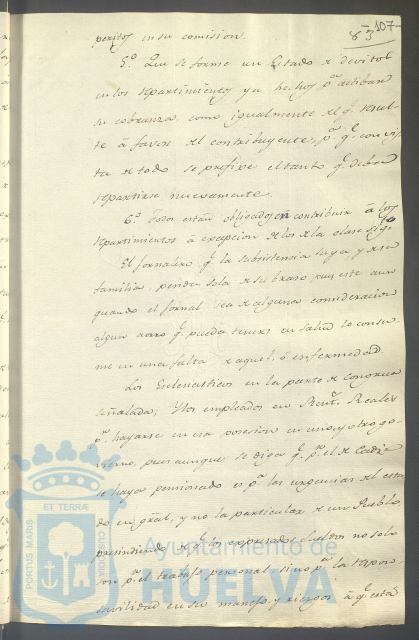 -107-
83
peritos en su comision.
5.º Que se forme un Estado de devitos
en los repartimientos ya hechos pª activar
su cobranza, como igualmente de lo q.e resul-
te á favor del contribuyente, pª q.e con vis-
ta de todo se prefije el tanto q.e deba
repartirse nuevamente.
6.º Todos estan obligados en contribuir á los
repartimientos á excepcion de los de la clase sig.te
El jornalero q.e la subsistencia suya y de su
familia, pende sola de su brazo, pues este aun
quando el jornal sea de alguna consideracion
algun aorro q.e pueda tener en salud lo consu-
me en una falta de aquel, ó enfermedad.
Los Eclesiasticos en la parte de congrua
señalada; Y los empleados en Rent.s Reales
pr hayarse en esa posesion en uno, y otro go-
vierno, pues aunque se diga q.e pr el de Cadiz
se haya pensionado es pª las urgencias del esta-
do en gral, y no la particular de un Pueblo
prescindiendo de q.e los expresados sueldos no solo
son pr el travajo personal sino pr la respon-
savilidad en su manejo, y riesgos á q.e está
PORTUS MARIS
ET TERRÆ
CUSTODIA
Ayuntamiento de
HUELVA